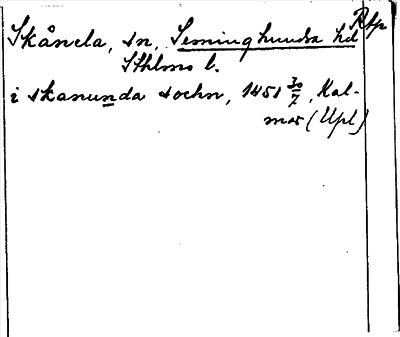 Rtp
Skånela, sn, Seminghundra hd
Sthlms l.
i skanunda sochn, 1451 30/7, Kal-
mar (Upl)